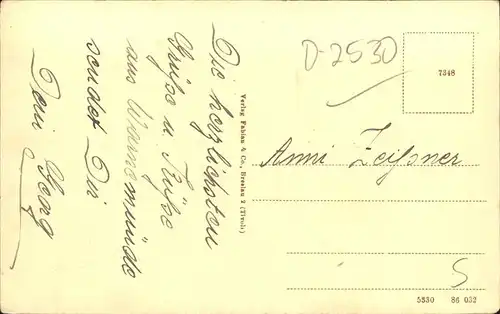 Die herzlichsten
Grüße u. Küße
aus Warnemünde
sendet Dir
Dein Georg
Verlag Fabian & Co., Breslau 2 (Tivoli)
D-2530
7348
Anni Zeißner
5
5330 86 052